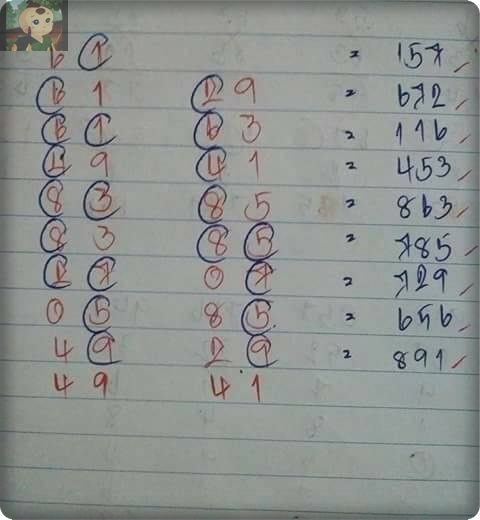 6 1 = 157
6 1 2 9 = 672
6 1 6 3 = 116
9 4 1 = 453
8 3 8 5 = 863
8 3 8 5 = 785
2 7 0 7 = 729
0 5 8 5 = 656
4 9 2 9 = 891
4 9 4 1